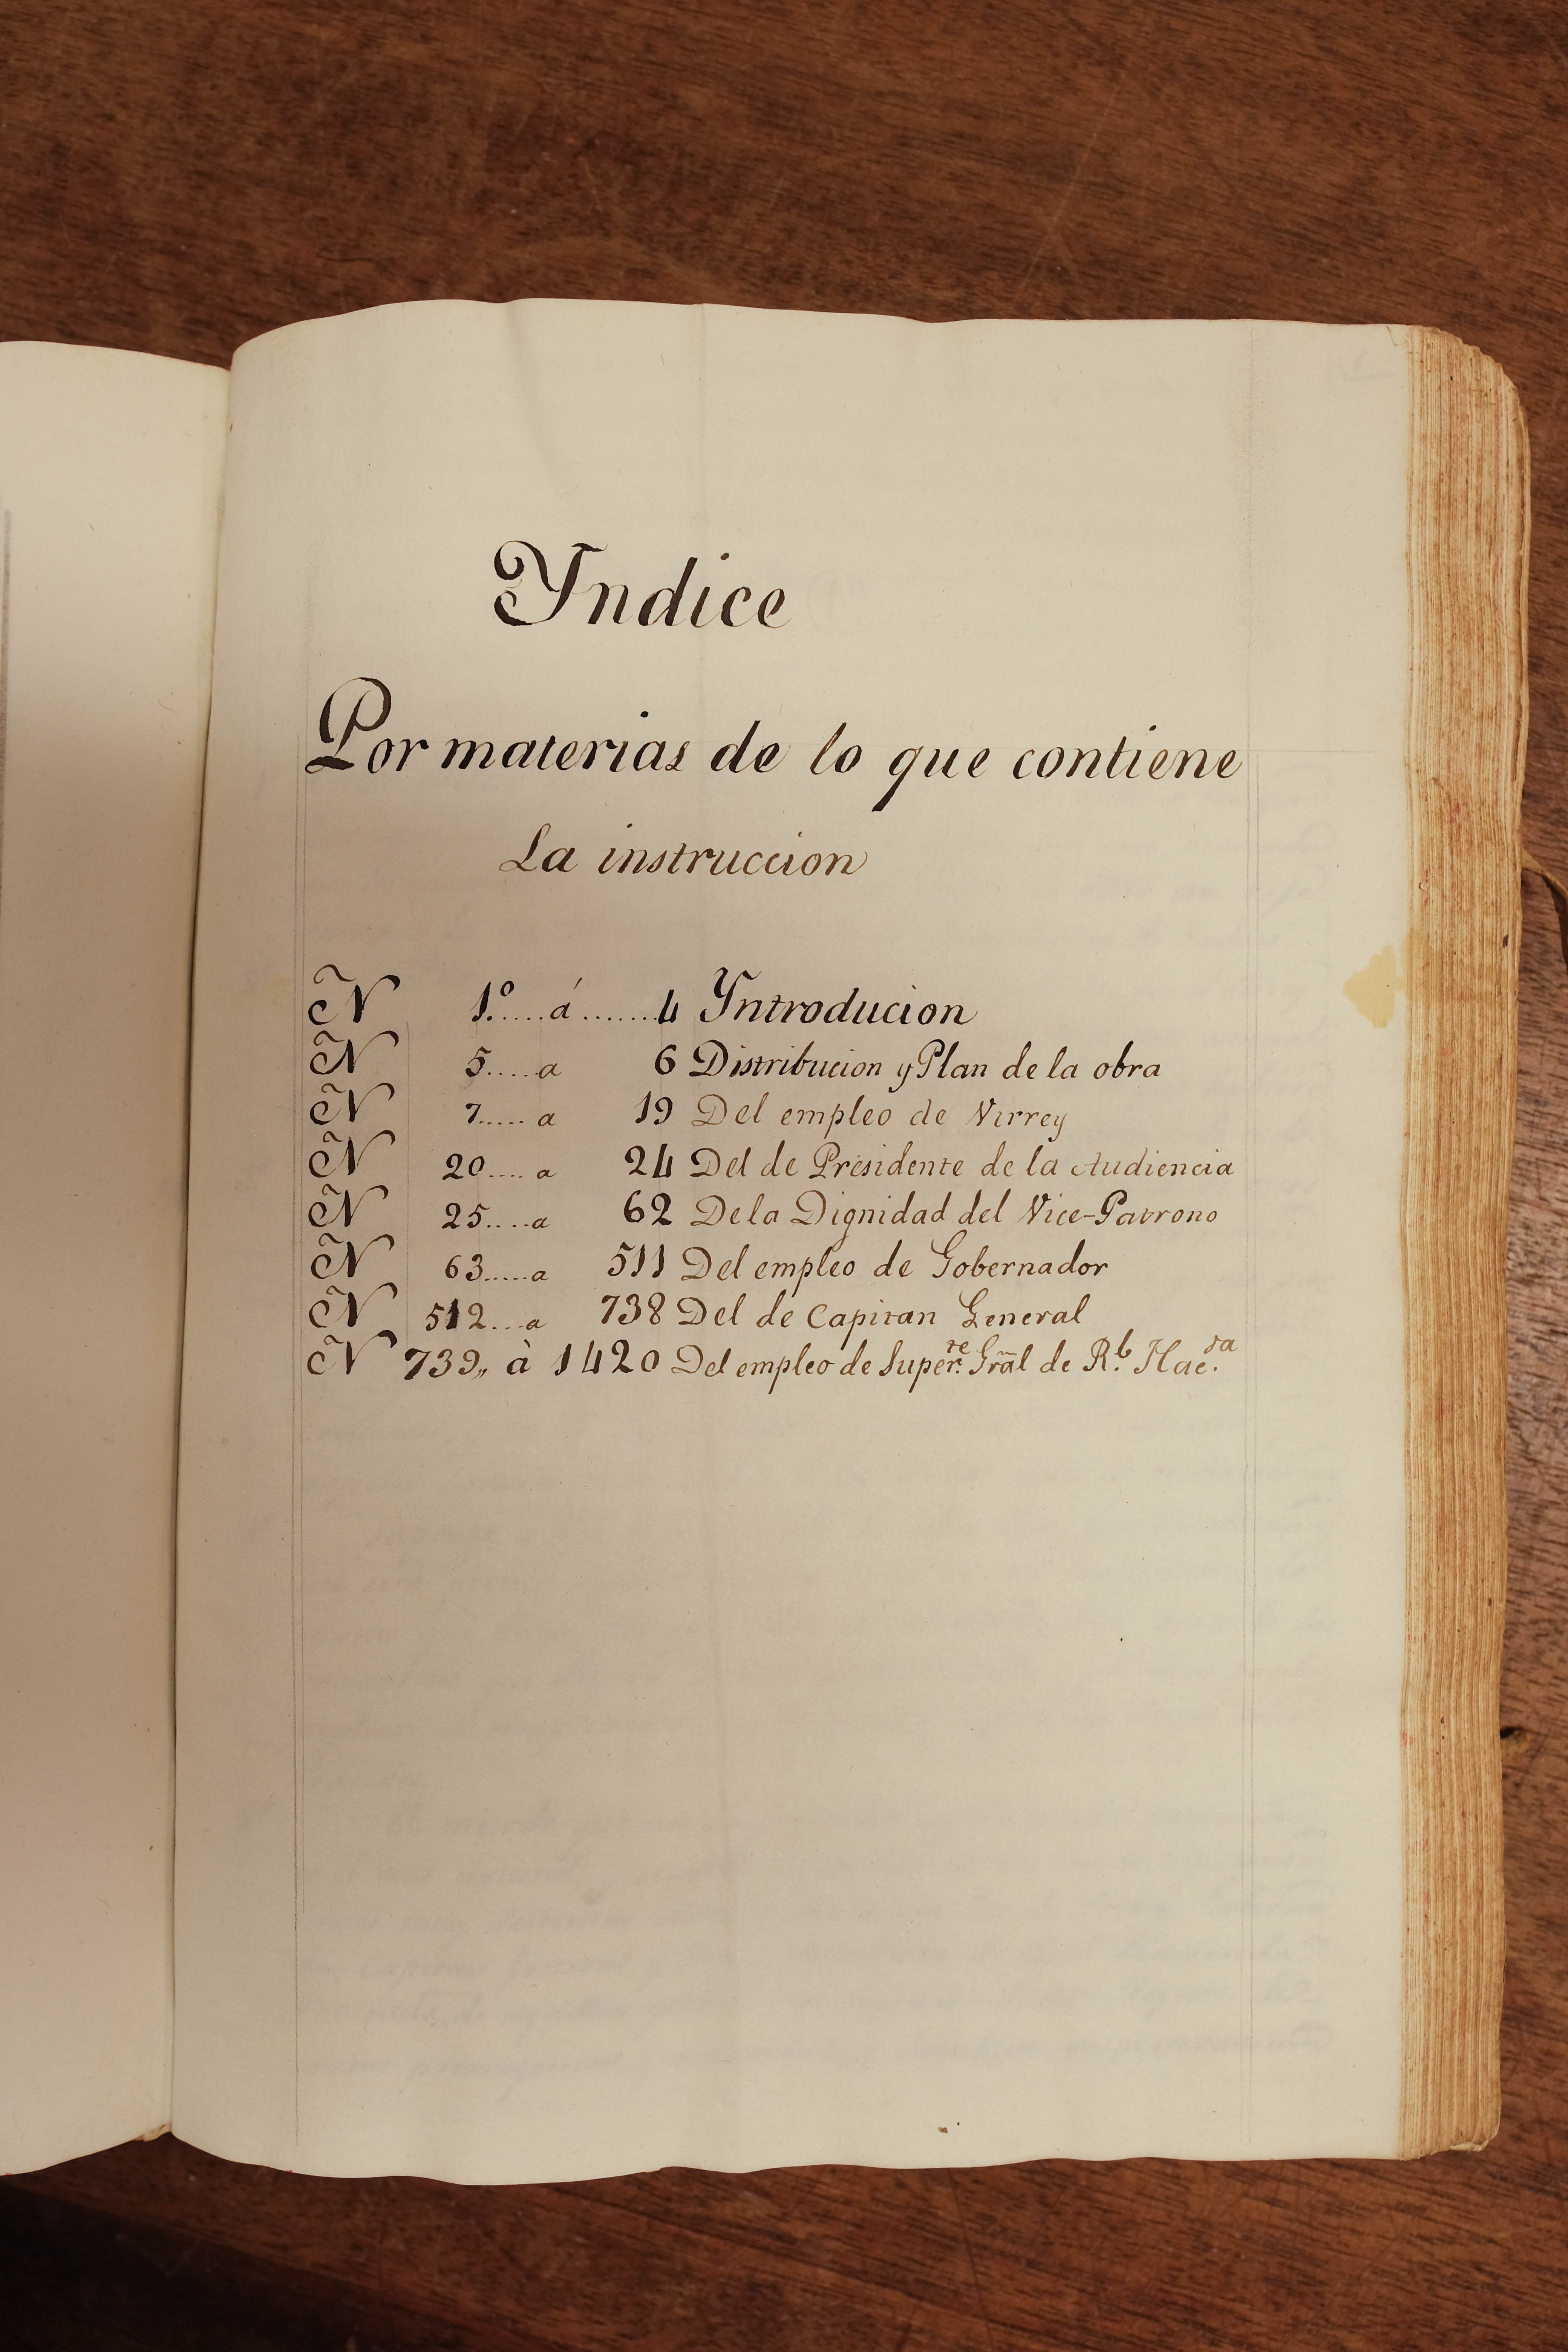 Yndice
Por materias de lo que contiene
La instruccion
N 1.º.....á.......4 Yntroducion
N 5.....a 6 Distribucion y Plan de la obra
N 7.....a 19 Del empleo de Virrey
N 20....a 24 Del de Presidente de la Audiencia
N 25....a 62 De la Dignidad del Vice-Patrono
N 63.....a 511 Del empleo de Gobernador
N 512...a 738 Del de Capitan General
N 739,, à 1420 Del empleo de Super.te Grãl de R.l Hac.da